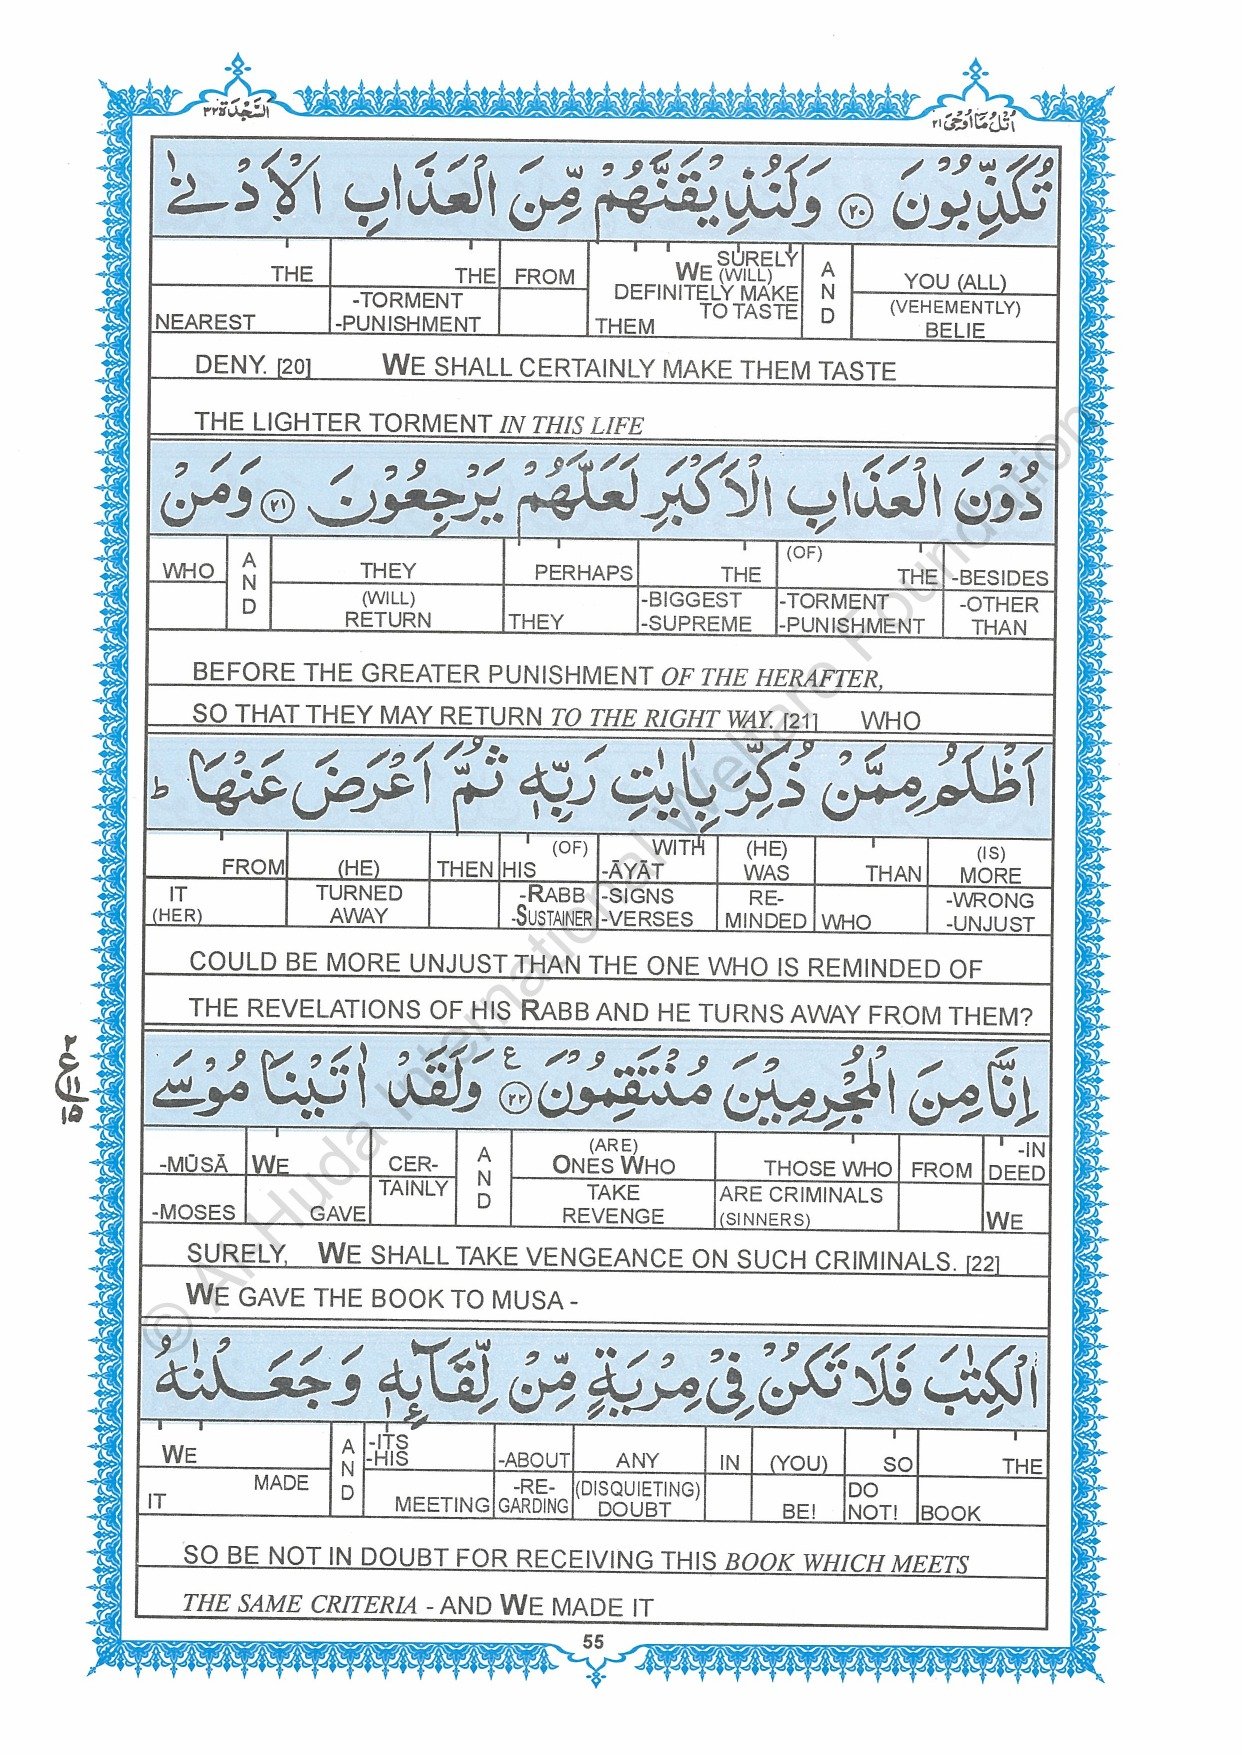 السَّجْدَة ٣٢
اُتْلُ مَآ اُوْحِىَ ٢١
تُكَذِّبُوْنَ ٢٠ وَلَنُذِيْقَنَّهُمْ مِّنَ الْعَذَابِ الْاَدْنٰى
THE THE FROM WE SURELY (WILL) DEFINITELY MAKE TO TASTE AND YOU (ALL)
NEAREST -TORMENT -PUNISHMENT THEM (VEHEMENTLY) BELIE
DENY. [20] WE SHALL CERTAINLY MAKE THEM TASTE
THE LIGHTER TORMENT IN THIS LIFE
دُوْنَ الْعَذَابِ الْاَكْبَرِ لَعَلَّهُمْ يَرْجِعُوْنَ ٢١ وَمَنْ
WHO AND THEY PERHAPS THE (OF) THE -BESIDES
(WILL) RETURN THEY -BIGGEST -SUPREME -TORMENT -PUNISHMENT -OTHER THAN
BEFORE THE GREATER PUNISHMENT OF THE HERAFTER,
SO THAT THEY MAY RETURN TO THE RIGHT WAY. [21] WHO
اَظْلَمُ مِمَّنْ ذُكِّرَ بِاٰيٰتِ رَبِّهٖ ثُمَّ اَعْرَضَ عَنْهَا ؕ
FROM (HE) THEN HIS (OF) WITH -ĀYĀT (HE) WAS THAN (IS) MORE
IT (HER) TURNED AWAY -RABB -SUSTAINER -SIGNS -VERSES RE-MINDED WHO -WRONG -UNJUST
COULD BE MORE UNJUST THAN THE ONE WHO IS REMINDED OF
THE REVELATIONS OF HIS RABB AND HE TURNS AWAY FROM THEM?
اِنَّا مِنَ الْمُجْرِمِيْنَ مُنْتَقِمُوْنَ ٢٢ ع وَلَقَدْ اٰتَيْنَا مُوْسَى
٢ ع ١١ ١٥
-MŪSĀ WE CER- AND (ARE) ONES WHO THOSE WHO FROM -IN DEED
-MOSES GAVE TAINLY TAKE REVENGE ARE CRIMINALS (SINNERS) WE
SURELY, WE SHALL TAKE VENGEANCE ON SUCH CRIMINALS. [22]
WE GAVE THE BOOK TO MUSA -
الْكِتٰبَ فَلَا تَكُنْ فِىْ مِرْيَةٍ مِّنْ لِّقَآئِهٖ وَجَعَلْنٰهُ
WE AND -ITS -HIS -ABOUT ANY IN (YOU) SO THE
IT MADE MEETING -RE-GARDING (DISQUIETING) DOUBT BE! DO NOT! BOOK
SO BE NOT IN DOUBT FOR RECEIVING THIS BOOK WHICH MEETS
THE SAME CRITERIA - AND WE MADE IT
55
© Al-Huda International Welfare Foundation